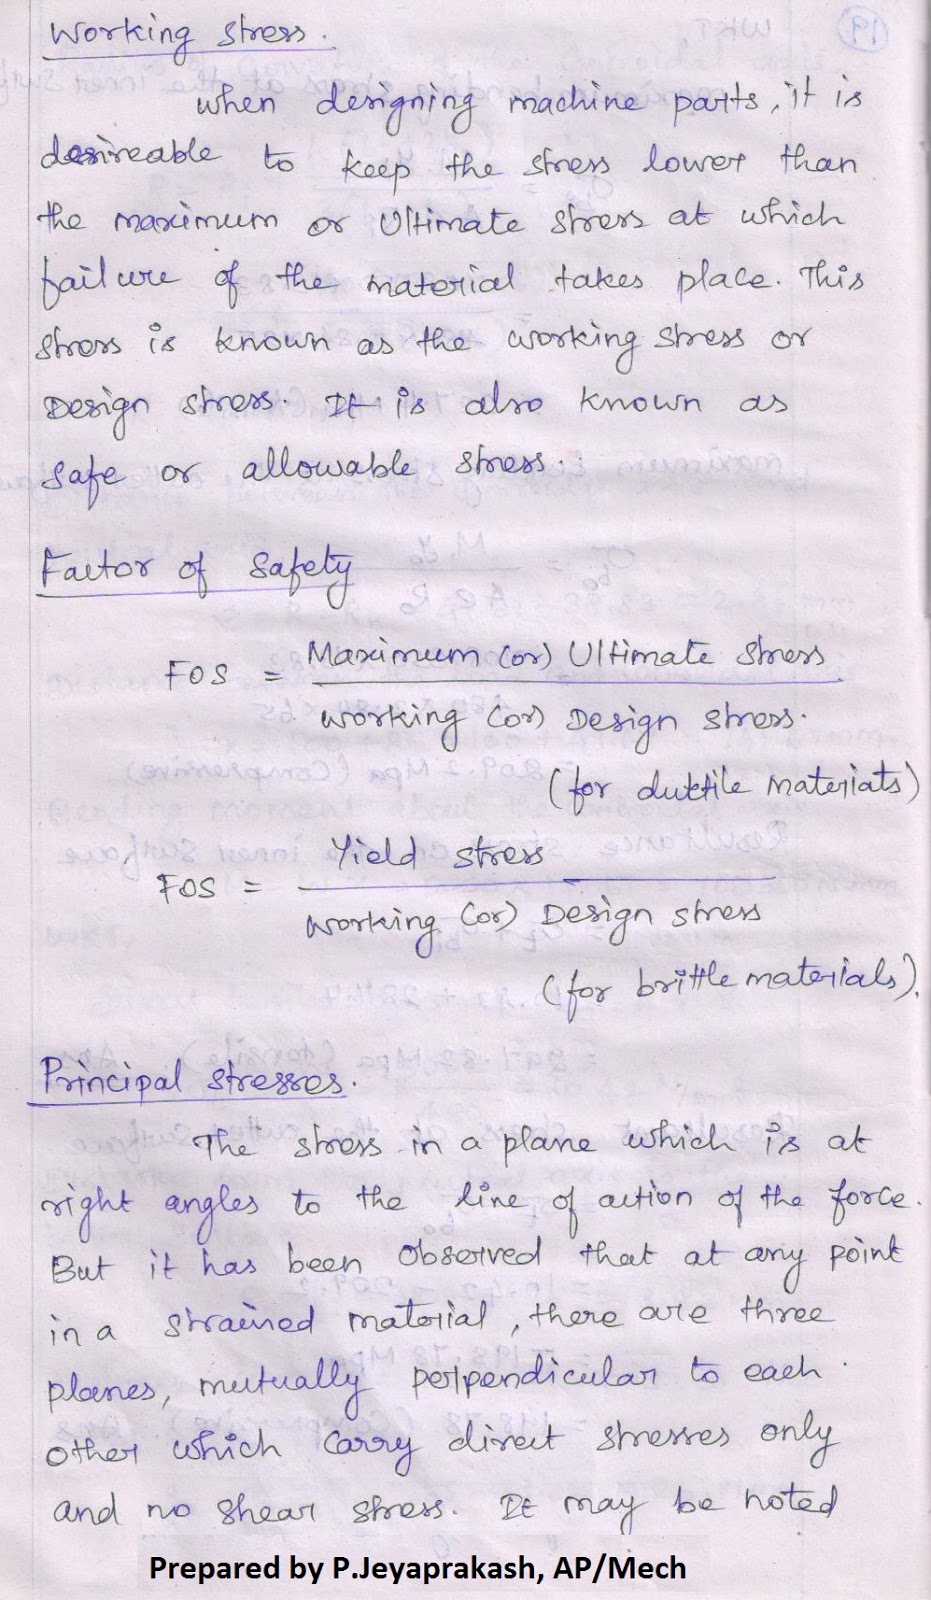 Working stress.
when designing machine parts, it is
desireable to keep the stress lower than
the maximum or Ultimate stress at which
failure of the material takes place. This
stress is known as the working stress or
Design stress. It is also known as
safe or allowable stress.
Factor of Safety
FOS = Maximum (or) Ultimate stress
working (or) Design stress.
(for ductile materials)
FOS = Yield stress
working (or) Design stress
(for brittle materials).
Principal stresses.
The stress in a plane which is at
right angles to the line of action of the force.
But it has been observed that at any point
in a strained material, there are three
planes, mutually perpendicular to each
other which carry direct stresses only
and no shear stress. It may be noted
Prepared by P.Jeyaprakash, AP/Mech